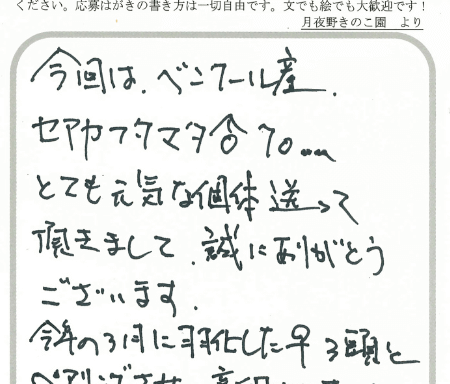 ください。応募はがきの書き方は一切自由です。文でも絵でも大歓迎です！
月夜野きのこ園　より
今回は、ベンクール産、
セアカフタマタ♂70mm
とても元気な個体送って
頂きまして、誠にありがとう
ございます。
今年の3月に羽化した♀3頭と
ペアリングさせ